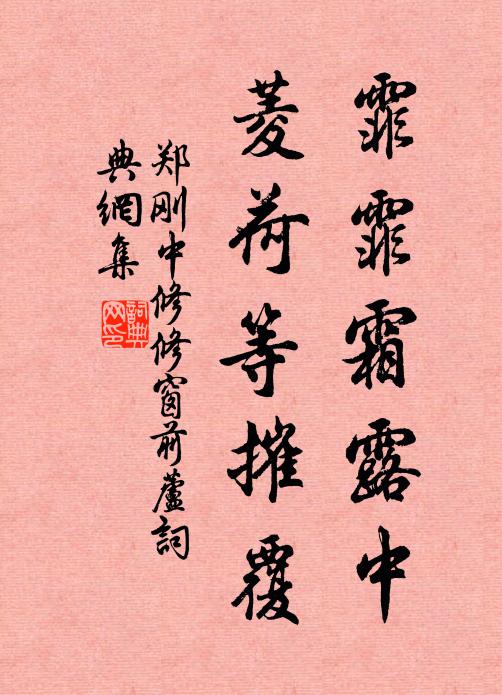 霏霏霜露中
菱荷等摧覆
郑刚中修修窗前蘆詞
典網集
詞典网印